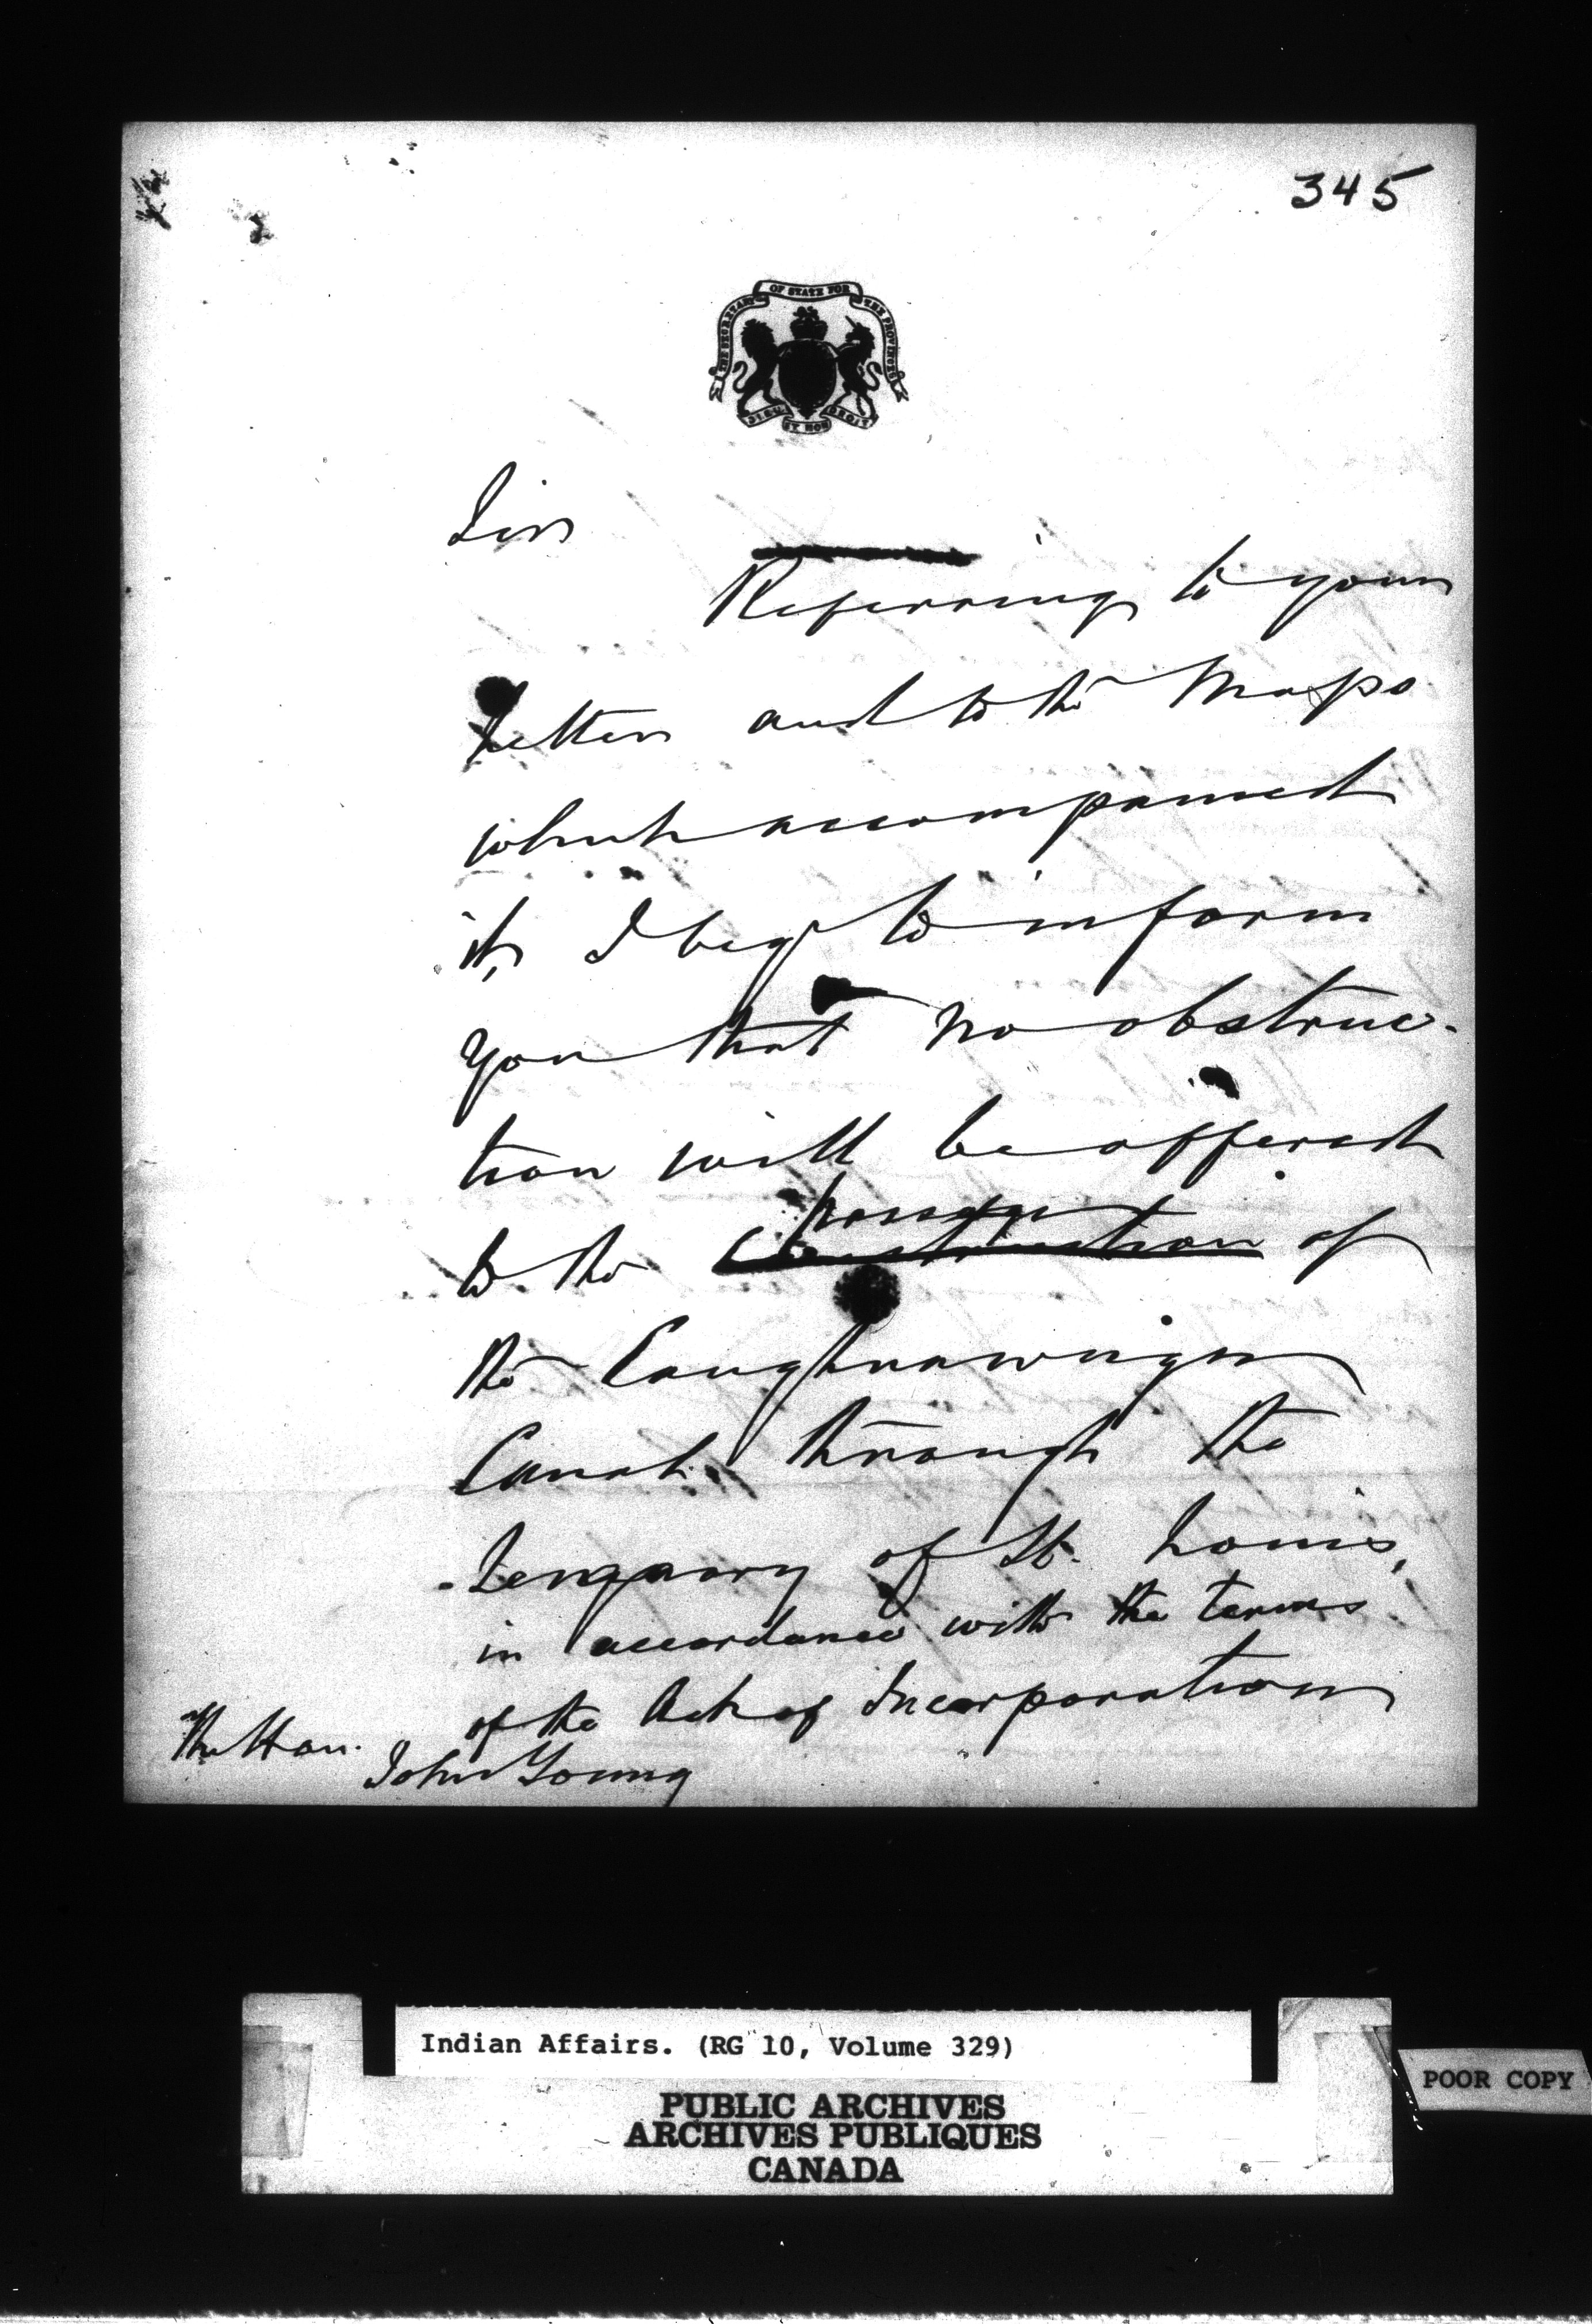 345
THE SECRETARY OF STATE FOR THE PROVINCES
DIEU ET MON DROIT
Sir
Referring to your
letter and to the Maps
which accompanied
it, I beg to inform
you that no obstruc-
tion will be offered
passage
to the construction of
the Caughnawaga
Canal through the
Seignory of St. Louis,
in accordance with the terms
of the Act of Incorporation
The Hon.
John Young
Indian Affairs. (RG 10, Volume 329)
PUBLIC ARCHIVES
ARCHIVES PUBLIQUES
CANADA
POOR COPY